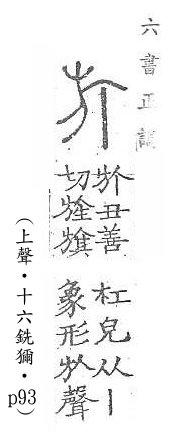 六書正
𣃘丑善
切旌旗
杠皃从丨
象形㫃聲
（上聲．十六銑獮．p93）